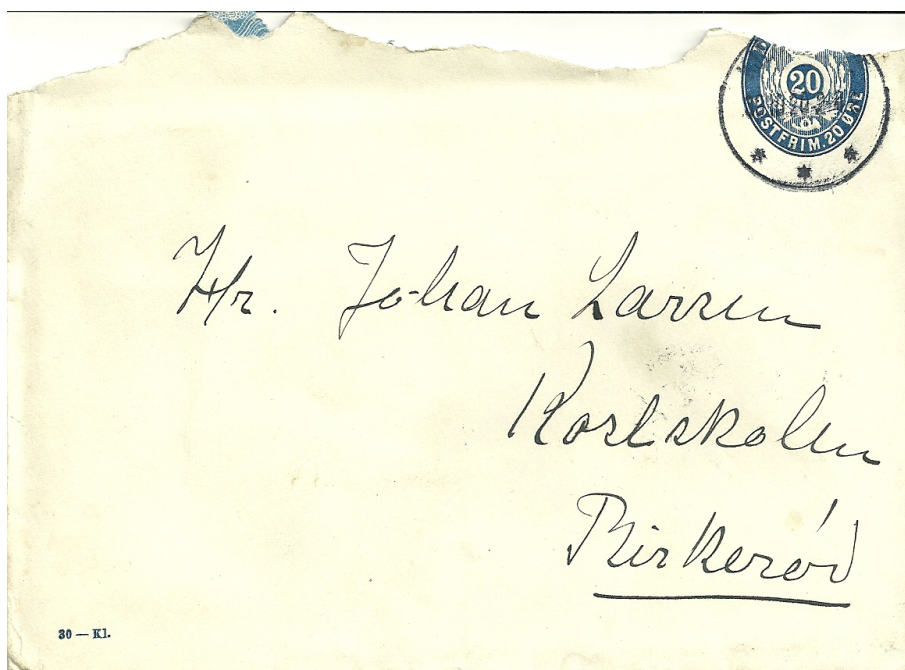 20
POSTFRIM. 20 ØRE
Hr. Johan Larsen
Kostskolen
Birkerød
30 — Kl.